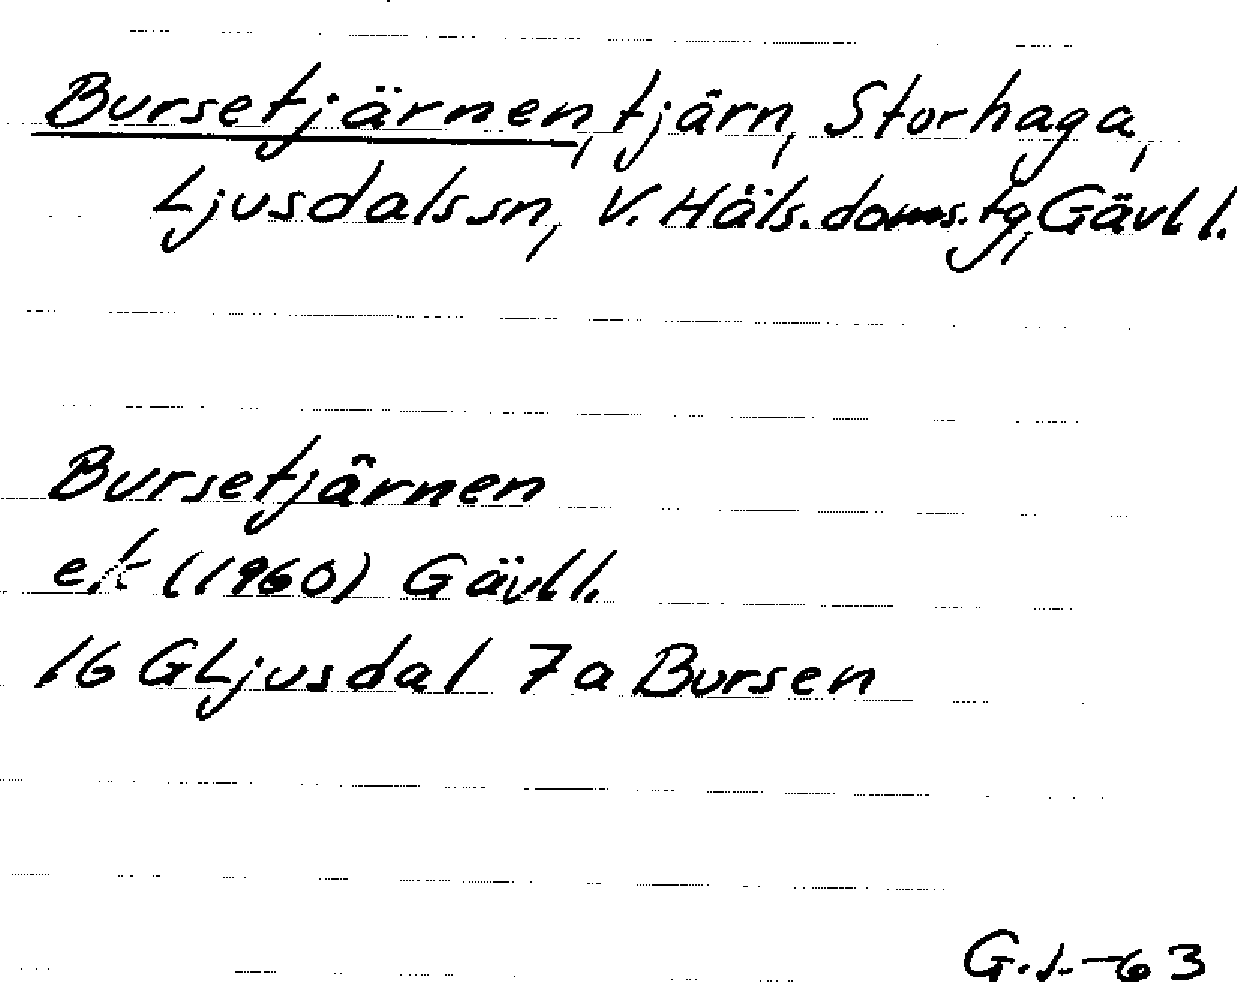 Bursetjärnen, tjärn, Storhaga,
Ljusdals sn, V. Häls. doms. tg, Gävl l.
Bursetjärnen
ek (1960) Gävl l.
16 G Ljusdal 7a Bursen
G.J.-63